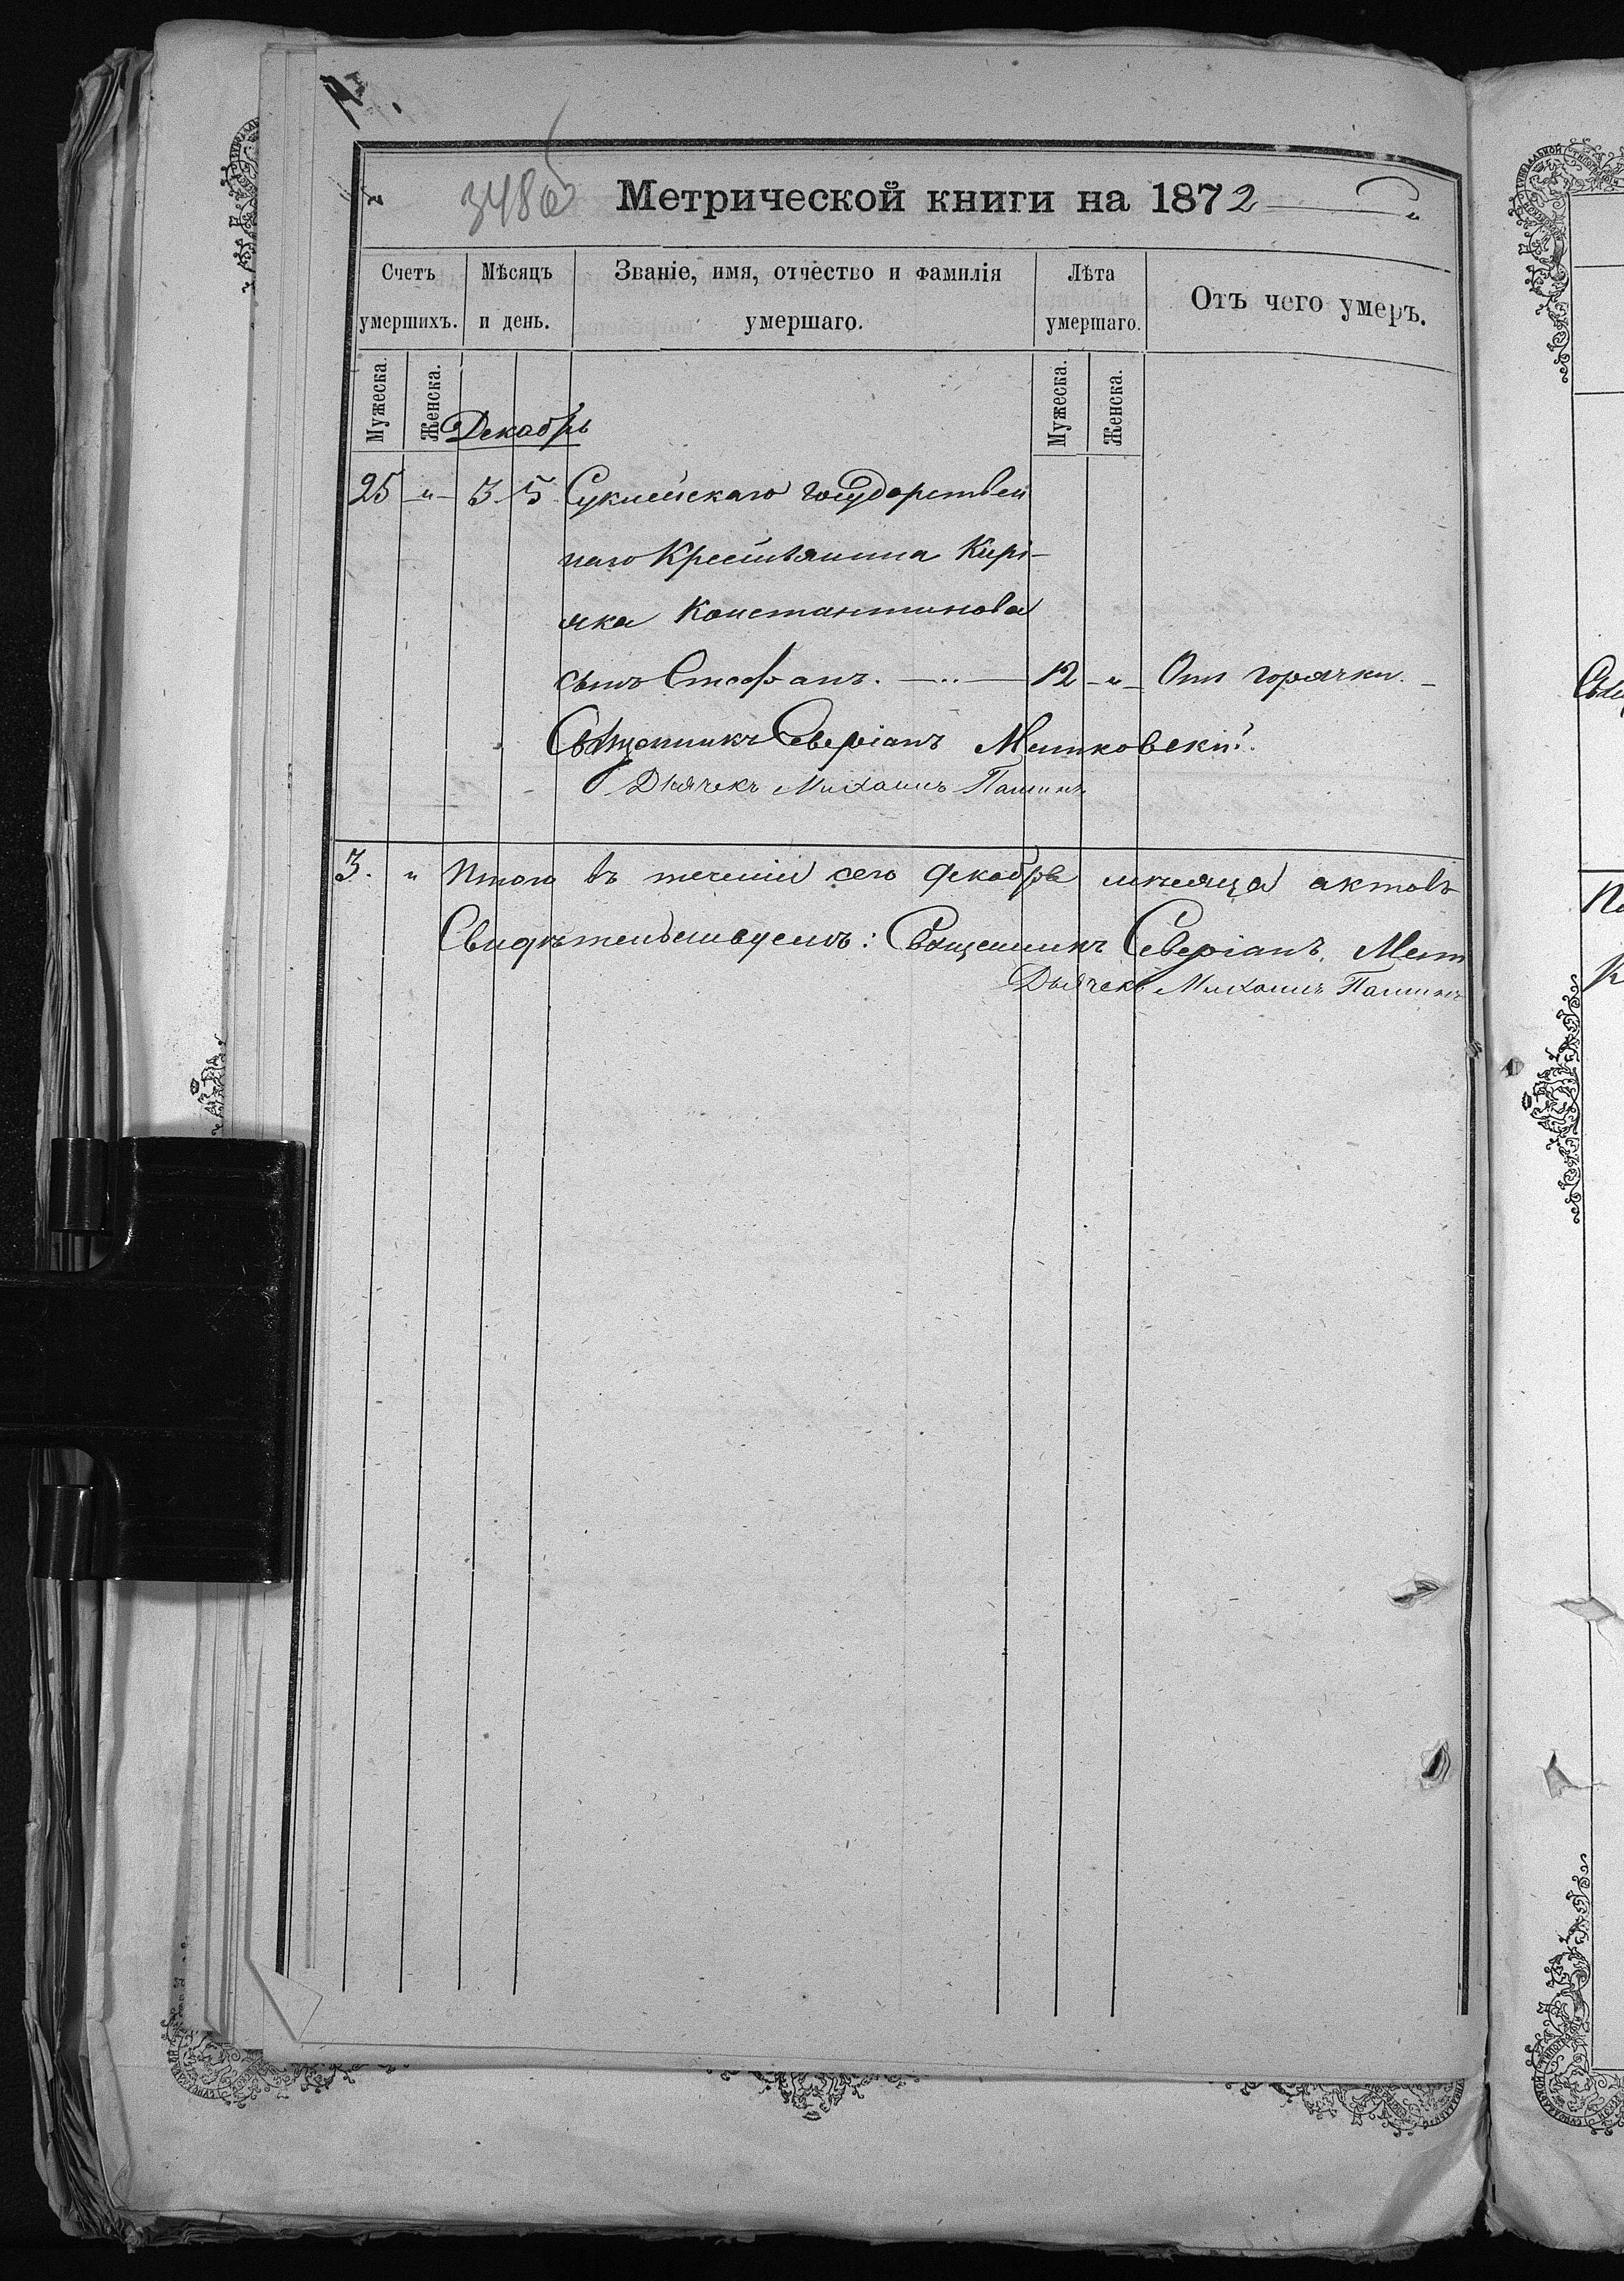 348об
Метрической книги на 1872
Счетъ умершихъ.
Мѣсяцъ и день.
Званіе, имя, отчество и фамилія умершаго.
Лѣта умершаго.
Отъ чего умеръ.
Мужеска. Женска. Мужеска. Женска.
Декабрь
25 „ 3 5 Суклейскаго государствен
наго Крестьянина Кирі-
яка Константинова
сынъ Стефанъ. 12 „ Отъ горячки.
Священникъ Северіанъ Мятковскій.
Дьячекъ Михаилъ Пашинъ
3. „ Итого въ теченіи сего декабря мѣсяца актовъ
Свидѣтельствуемъ: Священникъ Северіанъ
Дьячекъ Михаилъ Пашинъ